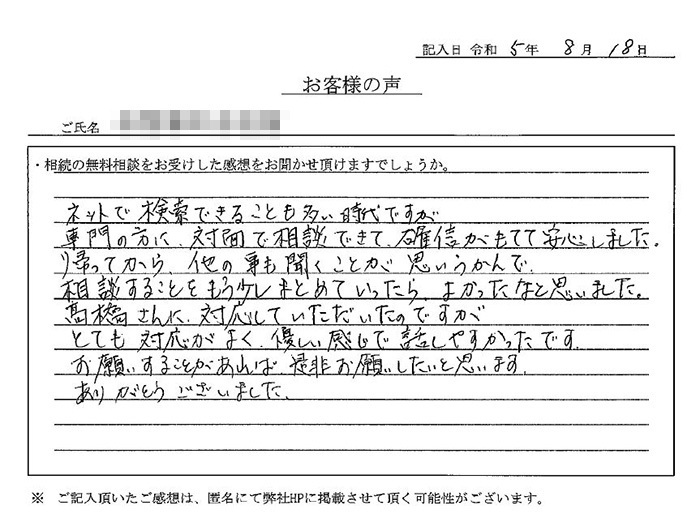 記入日 令和 5年 8月 18日
お客様の声
ご氏名
・相続の無料相談をお受けした感想をお聞かせ頂けますでしょうか。
ネットで検索できることも多い時代ですが
専門の方に、対面で相談できて、確信がもてて安心しました。
帰ってから、他の事も聞くことが思いうかんで、
相談することをもう少しまとめていったらよかったなと思いました。
髙橋さんに、対応していただいたのですが
とても対応がよく、優しい感じで話しやすかったです。
お願いすることがあれば、是非お願いしたいと思います。
ありがとうございました。
※ ご記入頂いたご感想は、匿名にて弊社HPに掲載させて頂く可能性がございます。